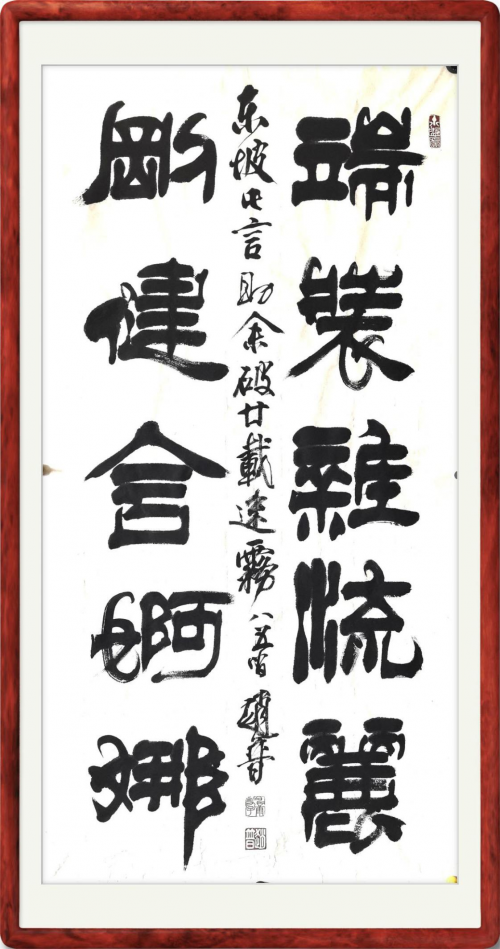 端裝雜流麗
东坡此言助余破廿載迷霧 八五 趙
剛健含婀娜